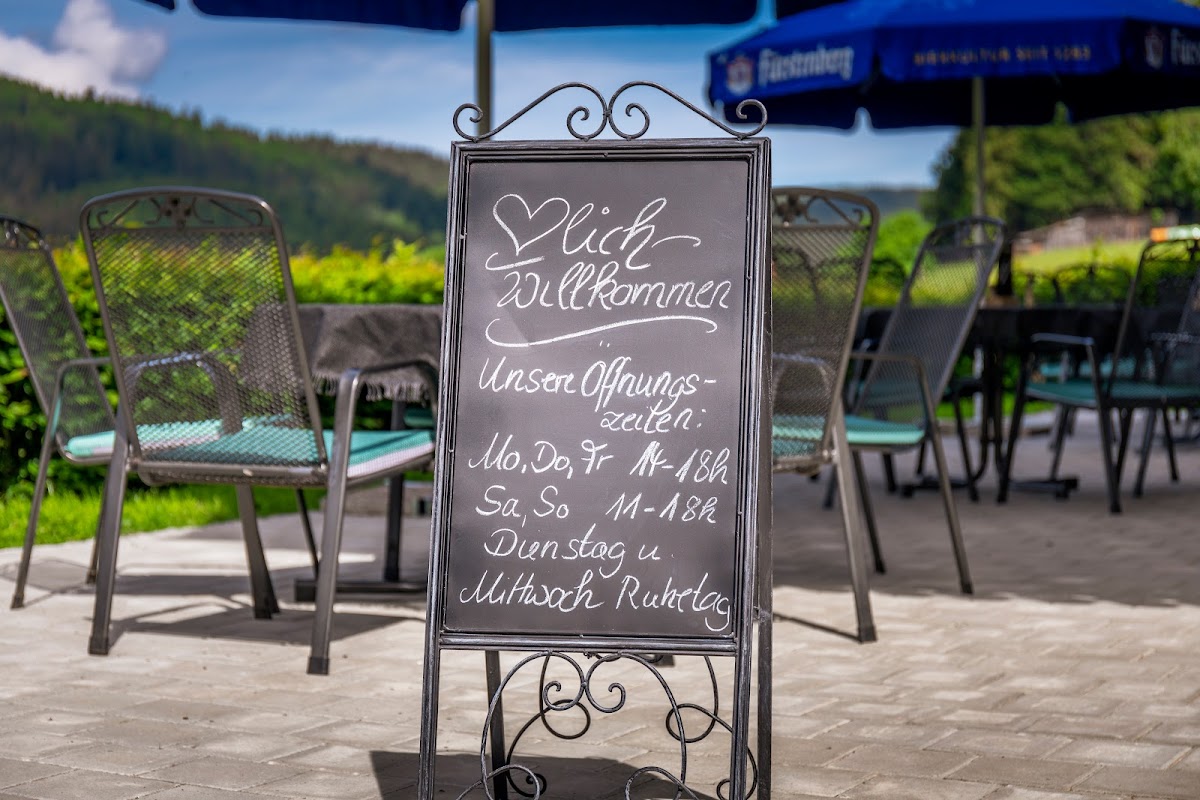 Fürstenberg
BIERKULTUR SEIT 1283
♡lich
Willkommen
Unsere Öffnungs-
zeiten:
Mo, Do, Fr 14-18h
Sa, So 11-18h
Dienstag u.
Mittwoch Ruhetag